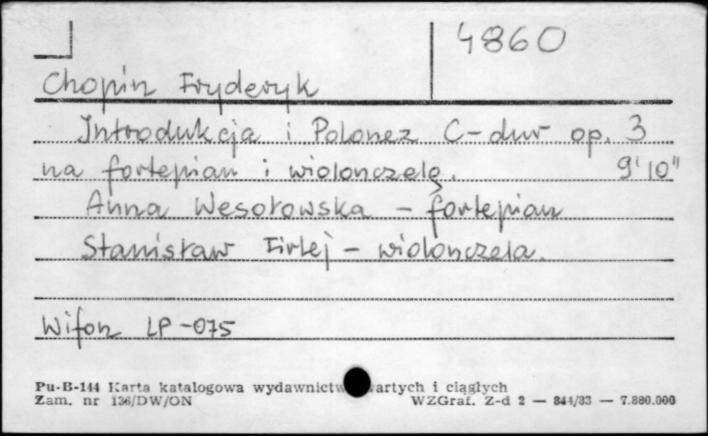 4860
Chopin Fryderyk
Introdukcja i Polonez C-dur op. 3
na fortepian i wiolonczelę. 9'10"
Anna Wesołowska - fortepian
Stanisław Firlej - wiolonczela.
Wifon LP-075
Pu-B-144 Karta katalogowa wydawnictw artych i ciągłych
Zam. nr 136/DW/ON WZGraf. Z-d 2 — 844/83 — 7.880.000